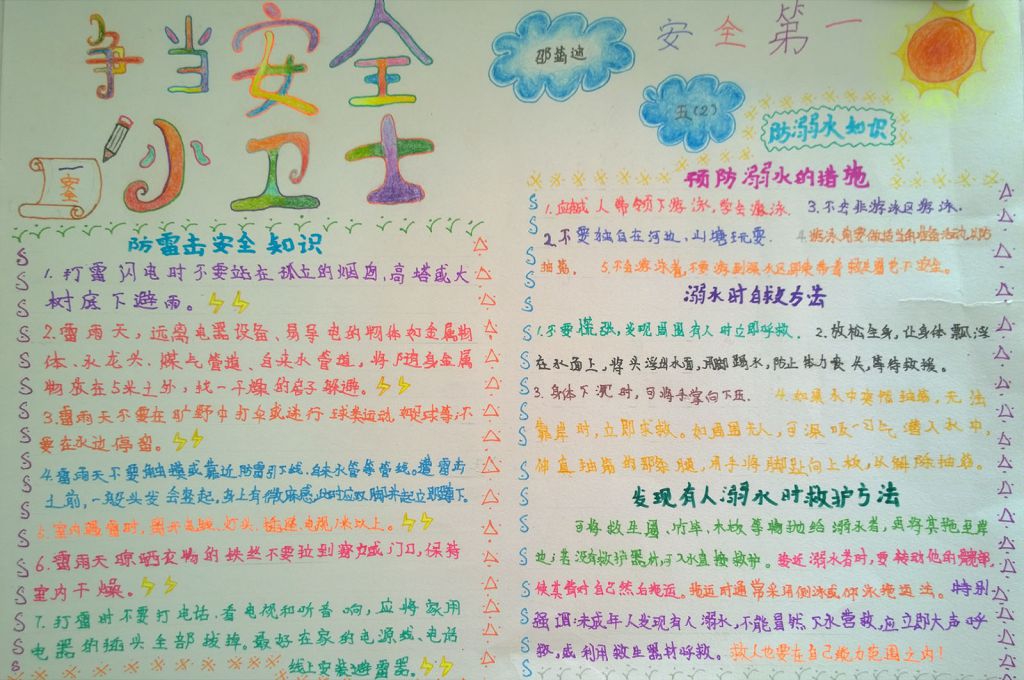 争当安全
小卫士
安全
邵
安全第一
五(2)
防溺水知识
防雷击安全知识
1.打雷闪电时不要站在孤立的烟囱,高塔或大
树底下避雨。
2.雷雨天,远离电器设备、易导电的物体如金属物
体、水龙头、煤气管道、自来水管道,将随身金属
物放在5米之外,找一干燥的房子躲避。
3.雷雨天不要在旷野中打伞或进行球类运动,
要在水边停留。
4.雷雨天不要触摸或靠近防雷引下线,自来水管等管线。遭雷击
之前,一般头发会竖起,身上有微麻感,此时应双脚并起立即蹲下。
5.室内遇雷时,离开电线、灯头、插座、电视1米以上。
6.雷雨天晾晒衣物的铁丝不要拉到窗户或门口,保持
室内干燥。
7.打雷时不要打电话、看电视和听音响,应将家用
电器的插头全部拔掉。最好在家的电源线、电话
线上安装避雷器。
预防溺水的措施
1.应成人带领下游泳,学会游泳. 3.不去非游泳区游泳.
2.不要独自在河边,山塘玩耍.
抽筋. 5.不会游泳者,不要游到深水区即使带着救生圈也不安全。
溺水时自救方法
1.不要慌张,发现周围有人时立即呼救. 2.放松全身,让身体飘浮
在水面上,将头浮出水面,用脚踢水,防止体力丧失,等待救援。
3.身体下沉时,可将手掌向下压. 4.如果水中突然抽筋,无法
靠岸时,立即求救。如周围无人,可深吸一口气潜入水中,
伸直抽筋的那条腿,用手将脚趾向上扳,以解除抽筋。
发现有人溺水时救护方法
可将救生圈、竹竿、木板等物抛给溺水者,再将其拖至岸
边;若没有救护器材,可入水直接救护。接近溺水者时,要转动他的髋部,
使其背时自己然后拖运。拖运时通常采用侧泳或仰泳拖运法。特别
强调:未成年人发现有人溺水,不能冒然下水营救,应立即大声呼
救,或利用救生器材呼救。救人也要在自己能力范围之内!